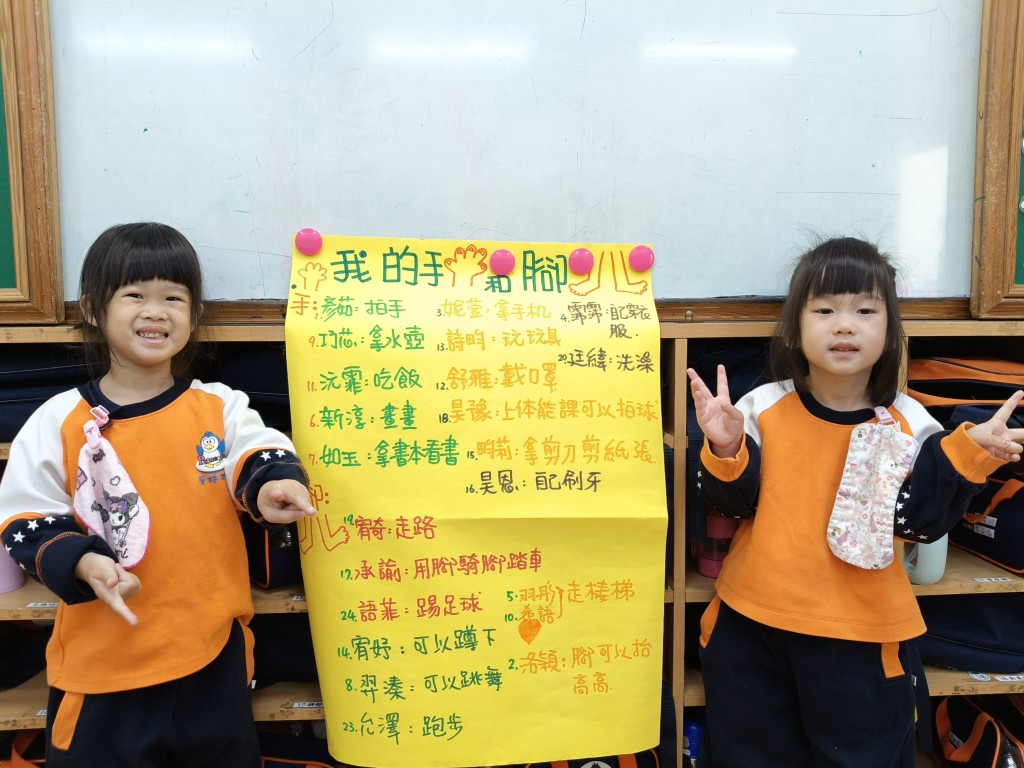 我的手和腳
手: 彥茹: 拍手
3. 妮萱: 拿手机
4. 霈霈: 自己穿衣服.
9. 巧芯: 拿水壺
13. 詩畇: 玩玩具
20. 廷緯: 洗澡
11. 沅霏: 吃飯
12. 舒雅: 戴口罩
6. 新淳: 畫畫
18. 昊豫: 上体能課可以拍球
7. 如玉: 拿書本看書
15. 畇莉: 拿剪刀剪紙張.
16. 昊恩: 自己刷牙
腳:
19. 宥綺: 走路
17. 承諭: 用腳騎腳踏車
24. 語菲: 踢足球
5. 羽彤
10. 希語
走楼梯
14. 宥妤: 可以蹲下
2. 洛穎: 腳可以抬高高.
8. 羿溱: 可以跳舞
23. 允澤: 跑步